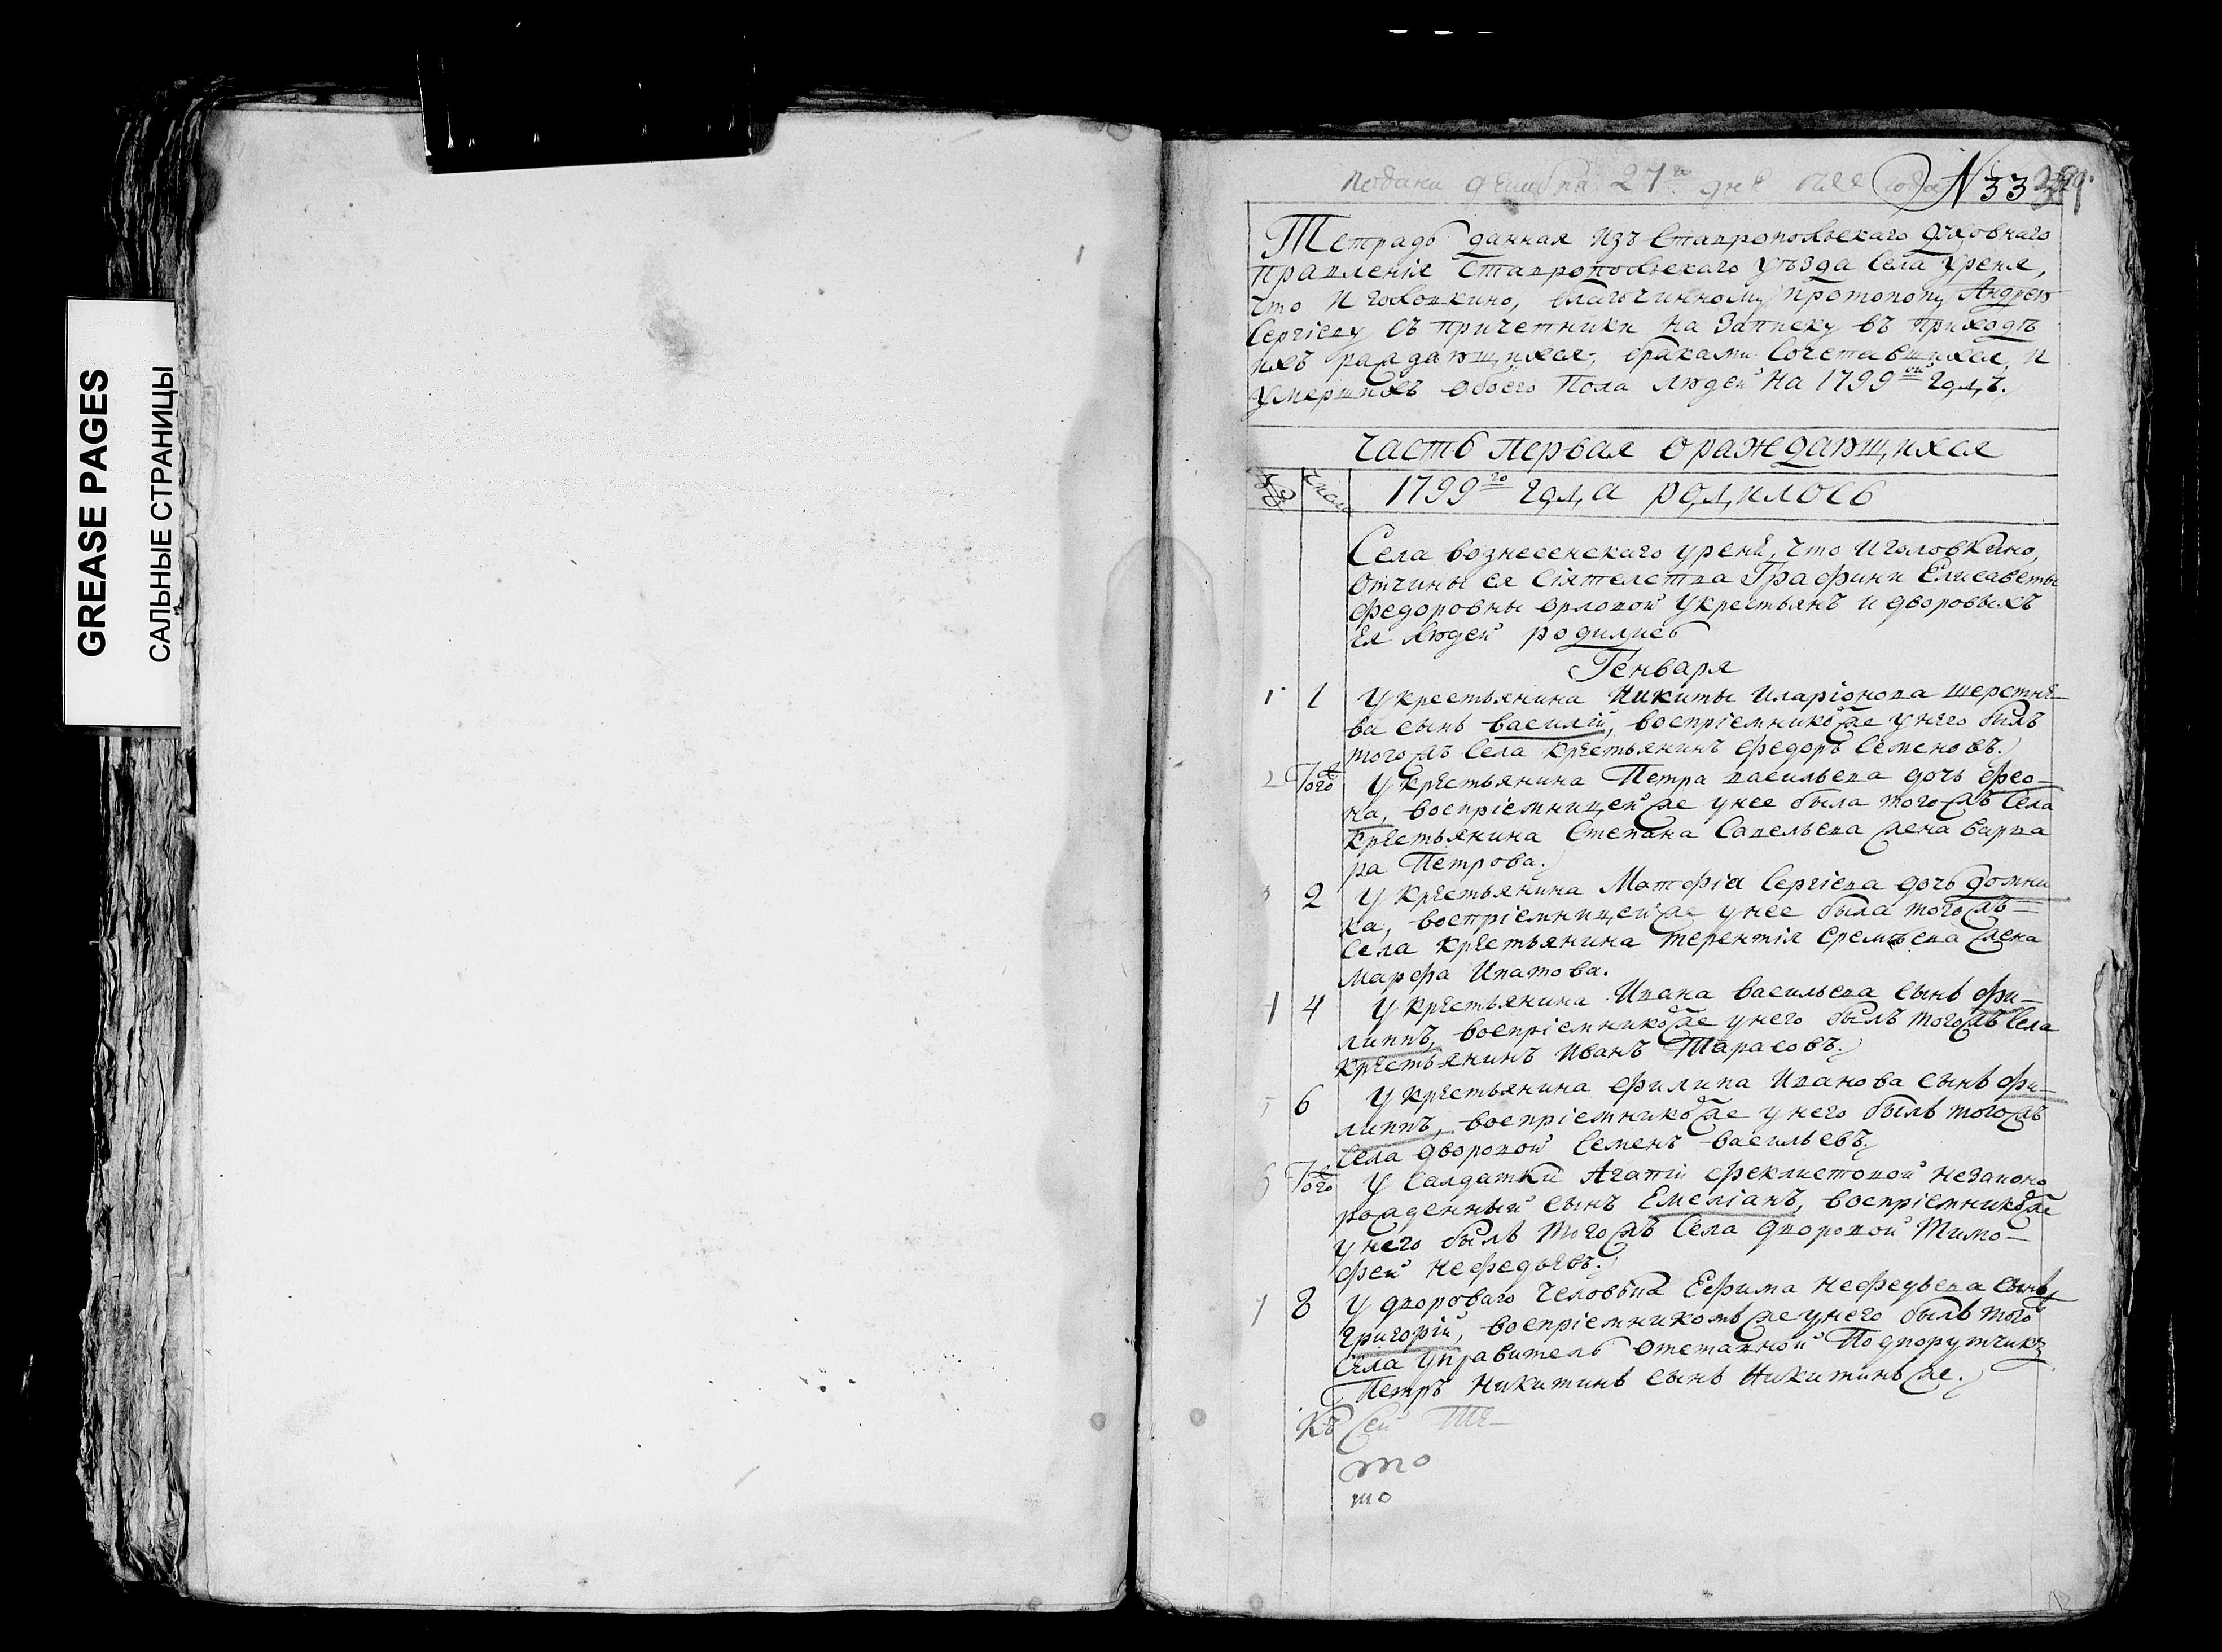 GREASE PAGES
САЛЬНЫЕ СТРАНИЦЫ
поданы 27го дня года №33
Тетрадь данная изъ Ставропольскаго духовнаго
правленія Ставропольскаго уѣзда Села Уреня,
что и Головкино, благочинному протопопу Андрею
Сергіеву съ причетники на записку въ приходѣ
ихъ раждающихся, браками сочетавшихся, и
умершихъ обоего пола людей на 1799ой годъ.
Часть первая о раждающихся
Числ 1799го года родилось
Села вознесенскаго уреня, что и головкино,
отчины ея Сіятелства Графини Елисаветы
Федоровны Орловой у крестьянъ и дворовыхъ
ея людей родились
Генваря
1 1 У крестьянина Никиты Иларіонова шерстне-
ва сынъ василій, воспріемникомже у него былъ
тогожъ Села крестьянинъ Федоръ Семеновъ.
2 Тогоже У крестьянина Петра васильева дочь Фео-
на, воспріемницейже у нее была тогожъ Села
крестьянина Степана Савельева жена варва
ра Петрова.
3 2 У крестьянина Матфіа Сергіева дочь домни
ка, воспріемницейже у нее была тогожъ-
Села крестьянина терентія еремѣева жена
марфа Ипатова.
4 4 У крестьянина Ивана васильева сынъ фи-
липпъ, воспріемникомже у него былъ тогожъ Села
крестьянинъ Иванъ Тарасовъ.
5 6 У крестьянина филипа Иванова сынъ фи-
липпъ, воспріемникомже у него былъ тогожъ
Села дворовой Семенъ васильевъ.
6 Тогоже У Салдатки Агапіи феклистовой незаконо
рожденный сынъ Емеліанъ, воспріемникомже
у него былъ тогожъ Села дворовой Тимо-
фей нефедьевъ.
7 8 У двороваго человѣка Ефима нефедьева сынъ
григорій, воспріемникомъже у него былъ того
села управитель отставной Подпорутчикъ
Петръ Никитинъ сынъ Никитинъже.
Къ Сей Те-
то
то